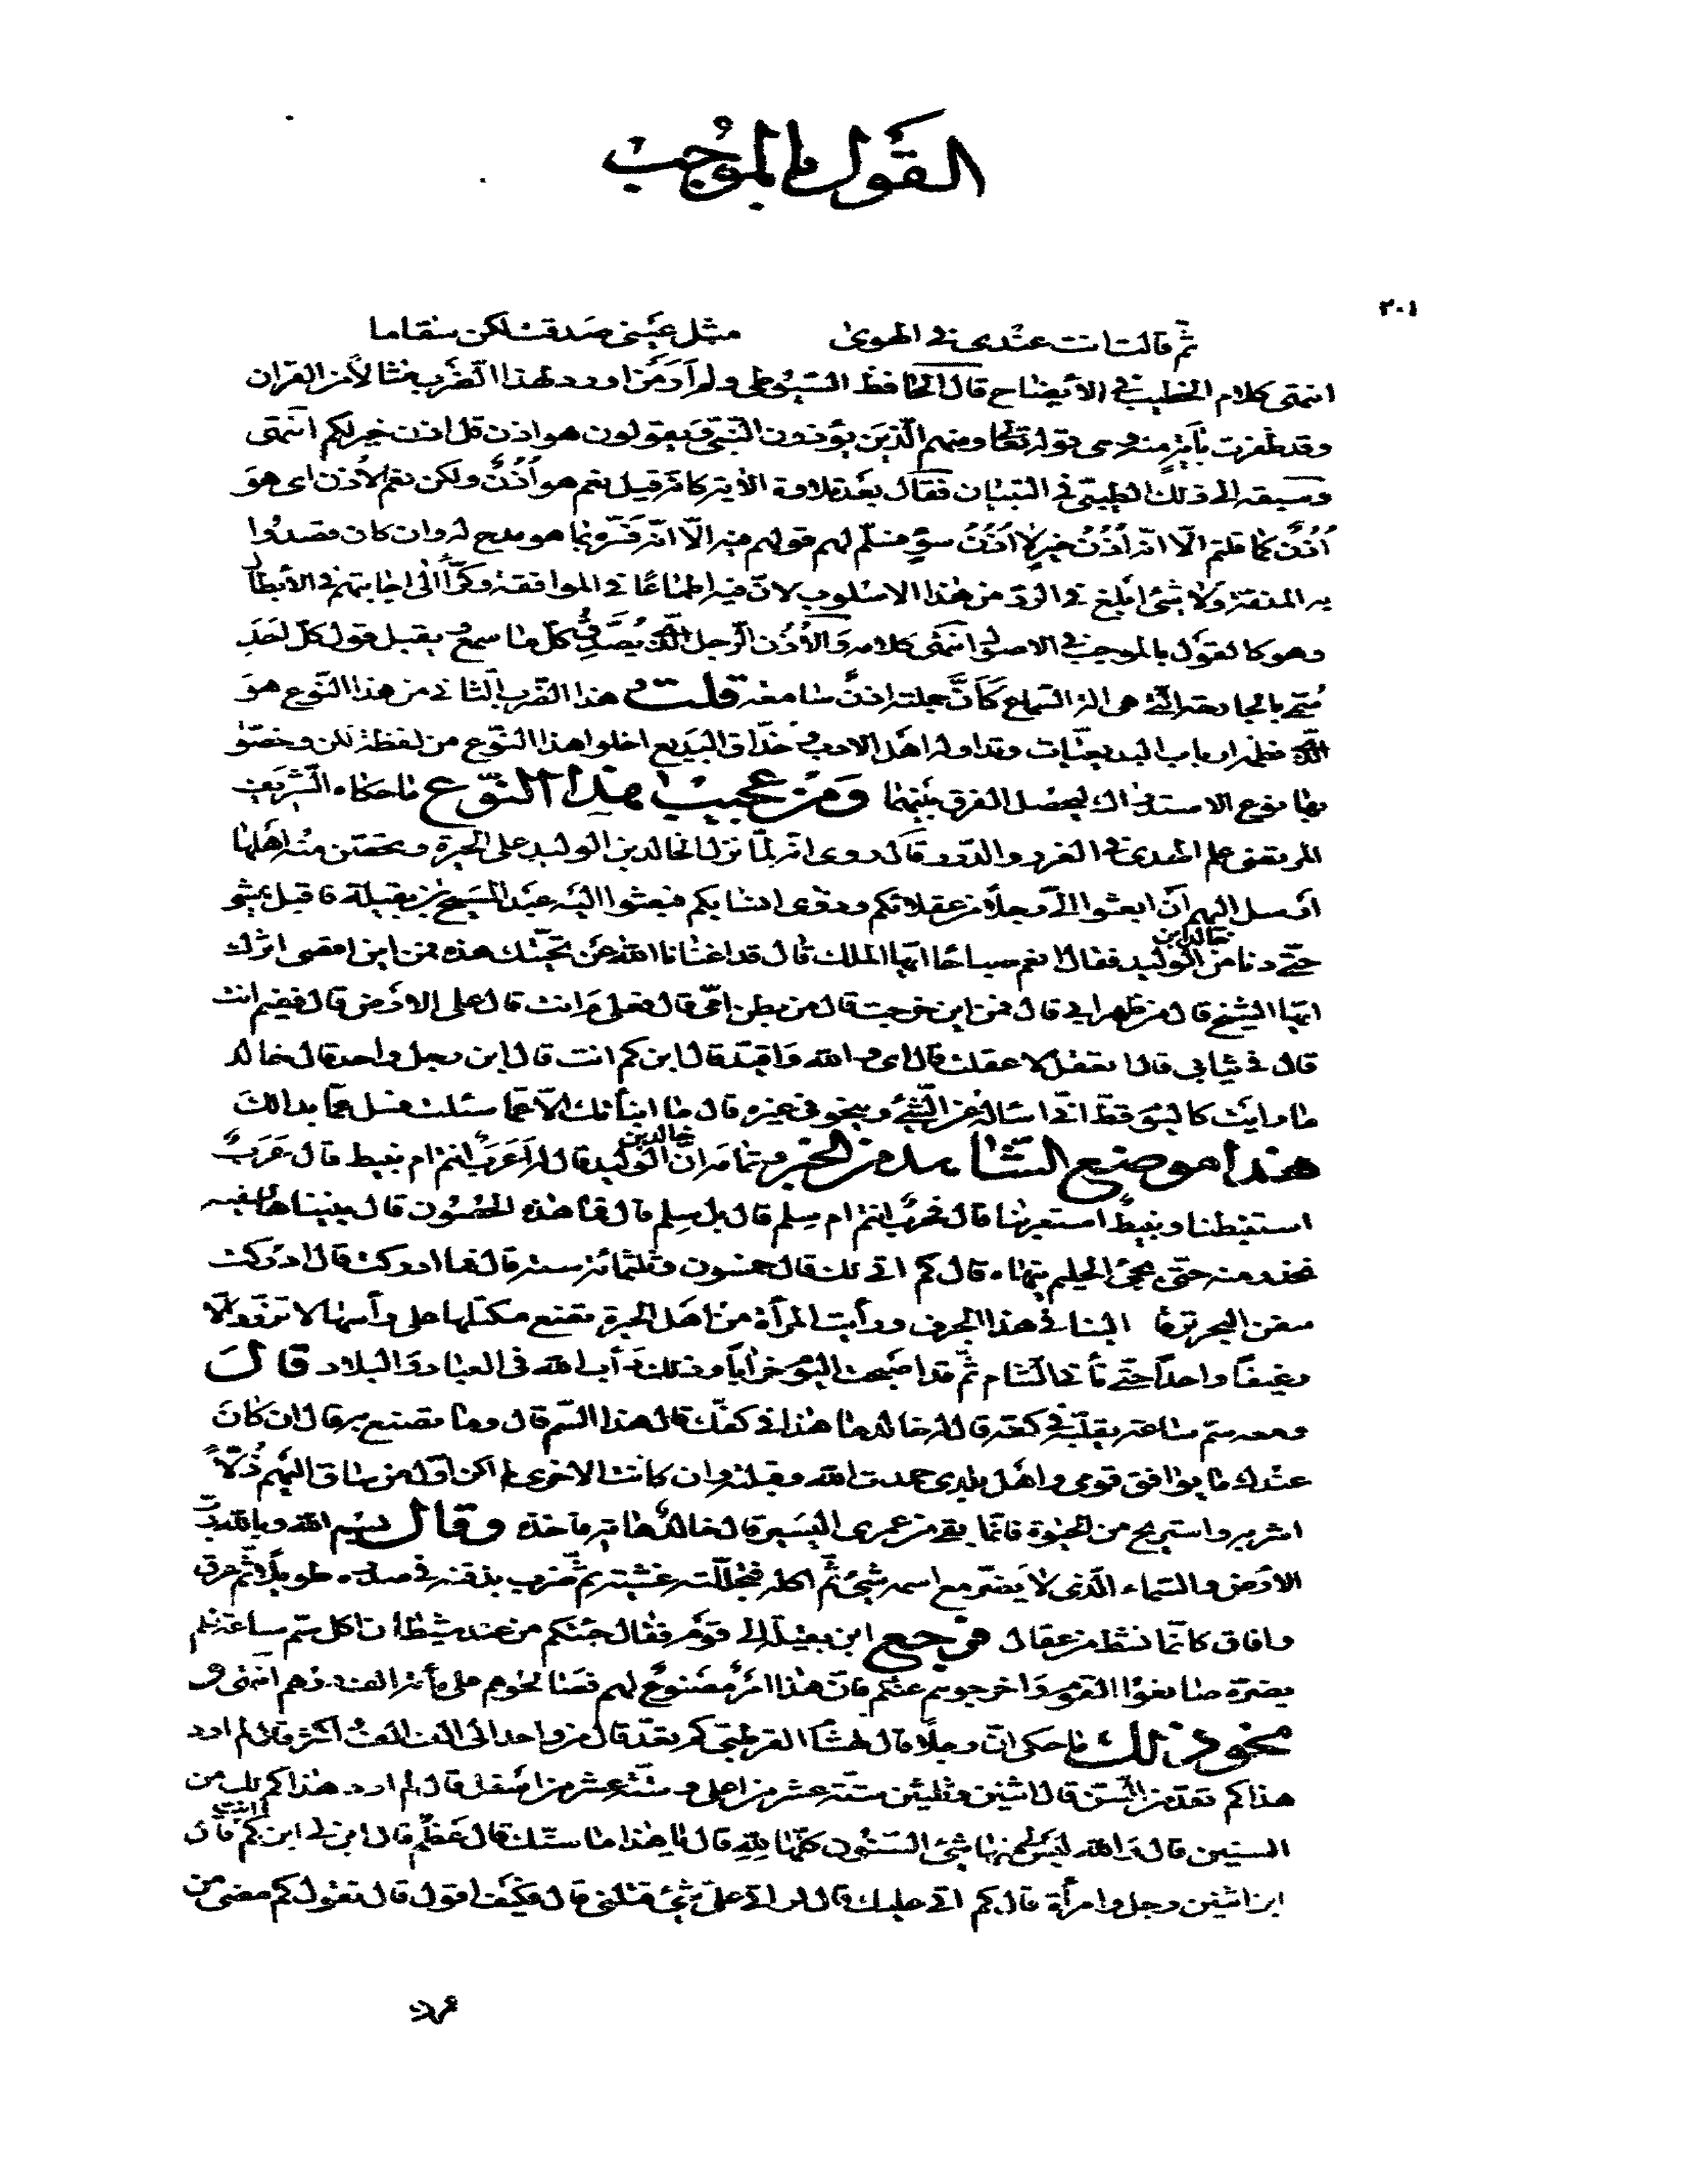 القول بالموجب
٢٠١
ثم قالت انت عندى فى الهوى مثل عينى صدقت لكن سقاما
انتهى كلام الخطيب فى الأيضاح قال الحافظ السيوطى ولم أر من اورد لهذا الضرب مثالاً من القران
وقد ظفرت بآية منه وهى قوله تعالى ومنهم الذين يؤذون النبى ويقولون هو اذن قل اذن خير لكم انتهى
وسبقه الى ذلك الطيبى فى التبيان فقال بعد تلاوة الأية كانه قيل نعم هو أذن ولكن نعم الأذن اى هو
أذن كما قلتم الا انه أذن خير لا أذن سوء فسلم لهم قولهم فيه الا انه فسره بما هو مدح له وان كان قصدوا
به المذمة ولا شئ ابلغ فى الرد من هذا الاسلوب لان فيه اطماعًا فى الموافقة وكرًّا الى اجابتهم فى الأبطال
وهو كالقول بالموجب فى الاصول انتهى كلامه والأذن الرجل الذى يصدق كل ما سمع ويقبل قول كل احد
سمى بالجارحة التى هى الة السماع كأن جملته اذن سامعة قلت هذا الضرب الثانى من هذا النوع هو
الذى نظمه ارباب البديعيات وتداوله اهل الادب وحذاق البديع اخلوا هذا النوع من لفظة لكن وخصوا
بها نوع الاستدراك ليحصل الفرق بينهما ومن عجيب هذا النوع ما حكاه الشريف
المرتضى علم الهدى فى الغرر والدرر قال روى انه لما نزل خالد بن الوليد على الحيرة وتحصن منه اهلها
ارسل اليهم ان ابعثوا الى رجلاً من عقلائكم وذوى انسابكم فبعثوا اليه عبد المسيح بن بقيلة فاقبل يمشى
حتى دنا من خالد ابن الوليد فقال انعم صباحًا ايها الملك قال قد اغنانا الله عن تحيتك هذه فمن اين اقصى اثرك
ايها الشيخ قال من ظهر ابى قال فمن اين خرجت قال من بطن امى قال فعلى م انت قال على الارض قال ففيم انت
قال فى ثيابى قال اتعقل لا عقلت قال اى والله واقيد قال ابن كم انت قال ابن رجل واحد قال خالد
ما رايت كاليوم قط انى اسأله عن الشئ وينحو فى غيره قال ما انبأتك الا عما سئلت فسل عما بدا لك
هذا موضع الشاهد من الخبر وتمامه ان خالد بن الوليد قال له أعرب انتم ام نبيط قال عرب
استنبطنا ونبيط استعربنا قال فحرب انتم ام سلم قال بل سلم قال فما هذه الحصون قال بنيناها لسفيه
نحذر منه حتى يجئ الحليم ينهاه قال كم اتى لك قال خمسون وثلثمائة سنة قال فما ادركت قال ادركت
سفن البحر ترفا الينا فى هذا الجرف ورأيت المرأة من اهل الحيرة تضع مكتلها على رأسها لا تزود الا
رغيفًا واحداً حتى تأتى الشام ثم قد اصبحت اليوم خرابًا وذلك دأب الله فى العباد والبلاد قال
ومعه سم ساعة يقلبه فى كفه قال له خالد ما هذا فى كفك قال هذا السم قال وما تصنع به قال ان كان
عندك ما يوافق قومى واهل بلدى حمدت الله وقبلته وان كانت الاخرى لم اكن اول من ساق اليهم ذلاً
اشربه واستريح من الحيوة فانما بقى من عمرى اليسير قال خالد هاته فاخذه وقال بسم الله وبالله رب
الأرض والسماء الذى لا يضر مع اسمه شئ ثم اكله فتجللته غشية ثم ضرب بذقنه فى صدره طويلاً ثم عرق
وافاق كانما نشط من عقال فرجع ابن بقيلة الى قومه فقال جئتكم من عند شيطان اكل سم ساعة فلم
يضره صانعوا القوم واخرجوهم عنكم فان هذا امر مصنوع لهم فصالحوهم على مأئة الف درهم انتهى و
نحو ذلك ما حكى ان رجلاً قال لهشام القرطبى كم تعد قال من واحد الى الف الف اكثر قال لم ارد
هذا كم تعد من السن قال اثنين وثلثين ستة عشر من اعلى وستة عشر من اسفل قال لم ارد هذا كم لك من
السنين قال والله ليس لى منها شئ السنون كلها لله قال يا هذا ما سنك قال عظم قال ابن لى ابن كم انت قال
ابن اثنين رجل وامرأة قال كم اتى عليك قال لو اتى على شئ قتلنى قال فكيف اقول قال تقول كم مضى من
عمرك